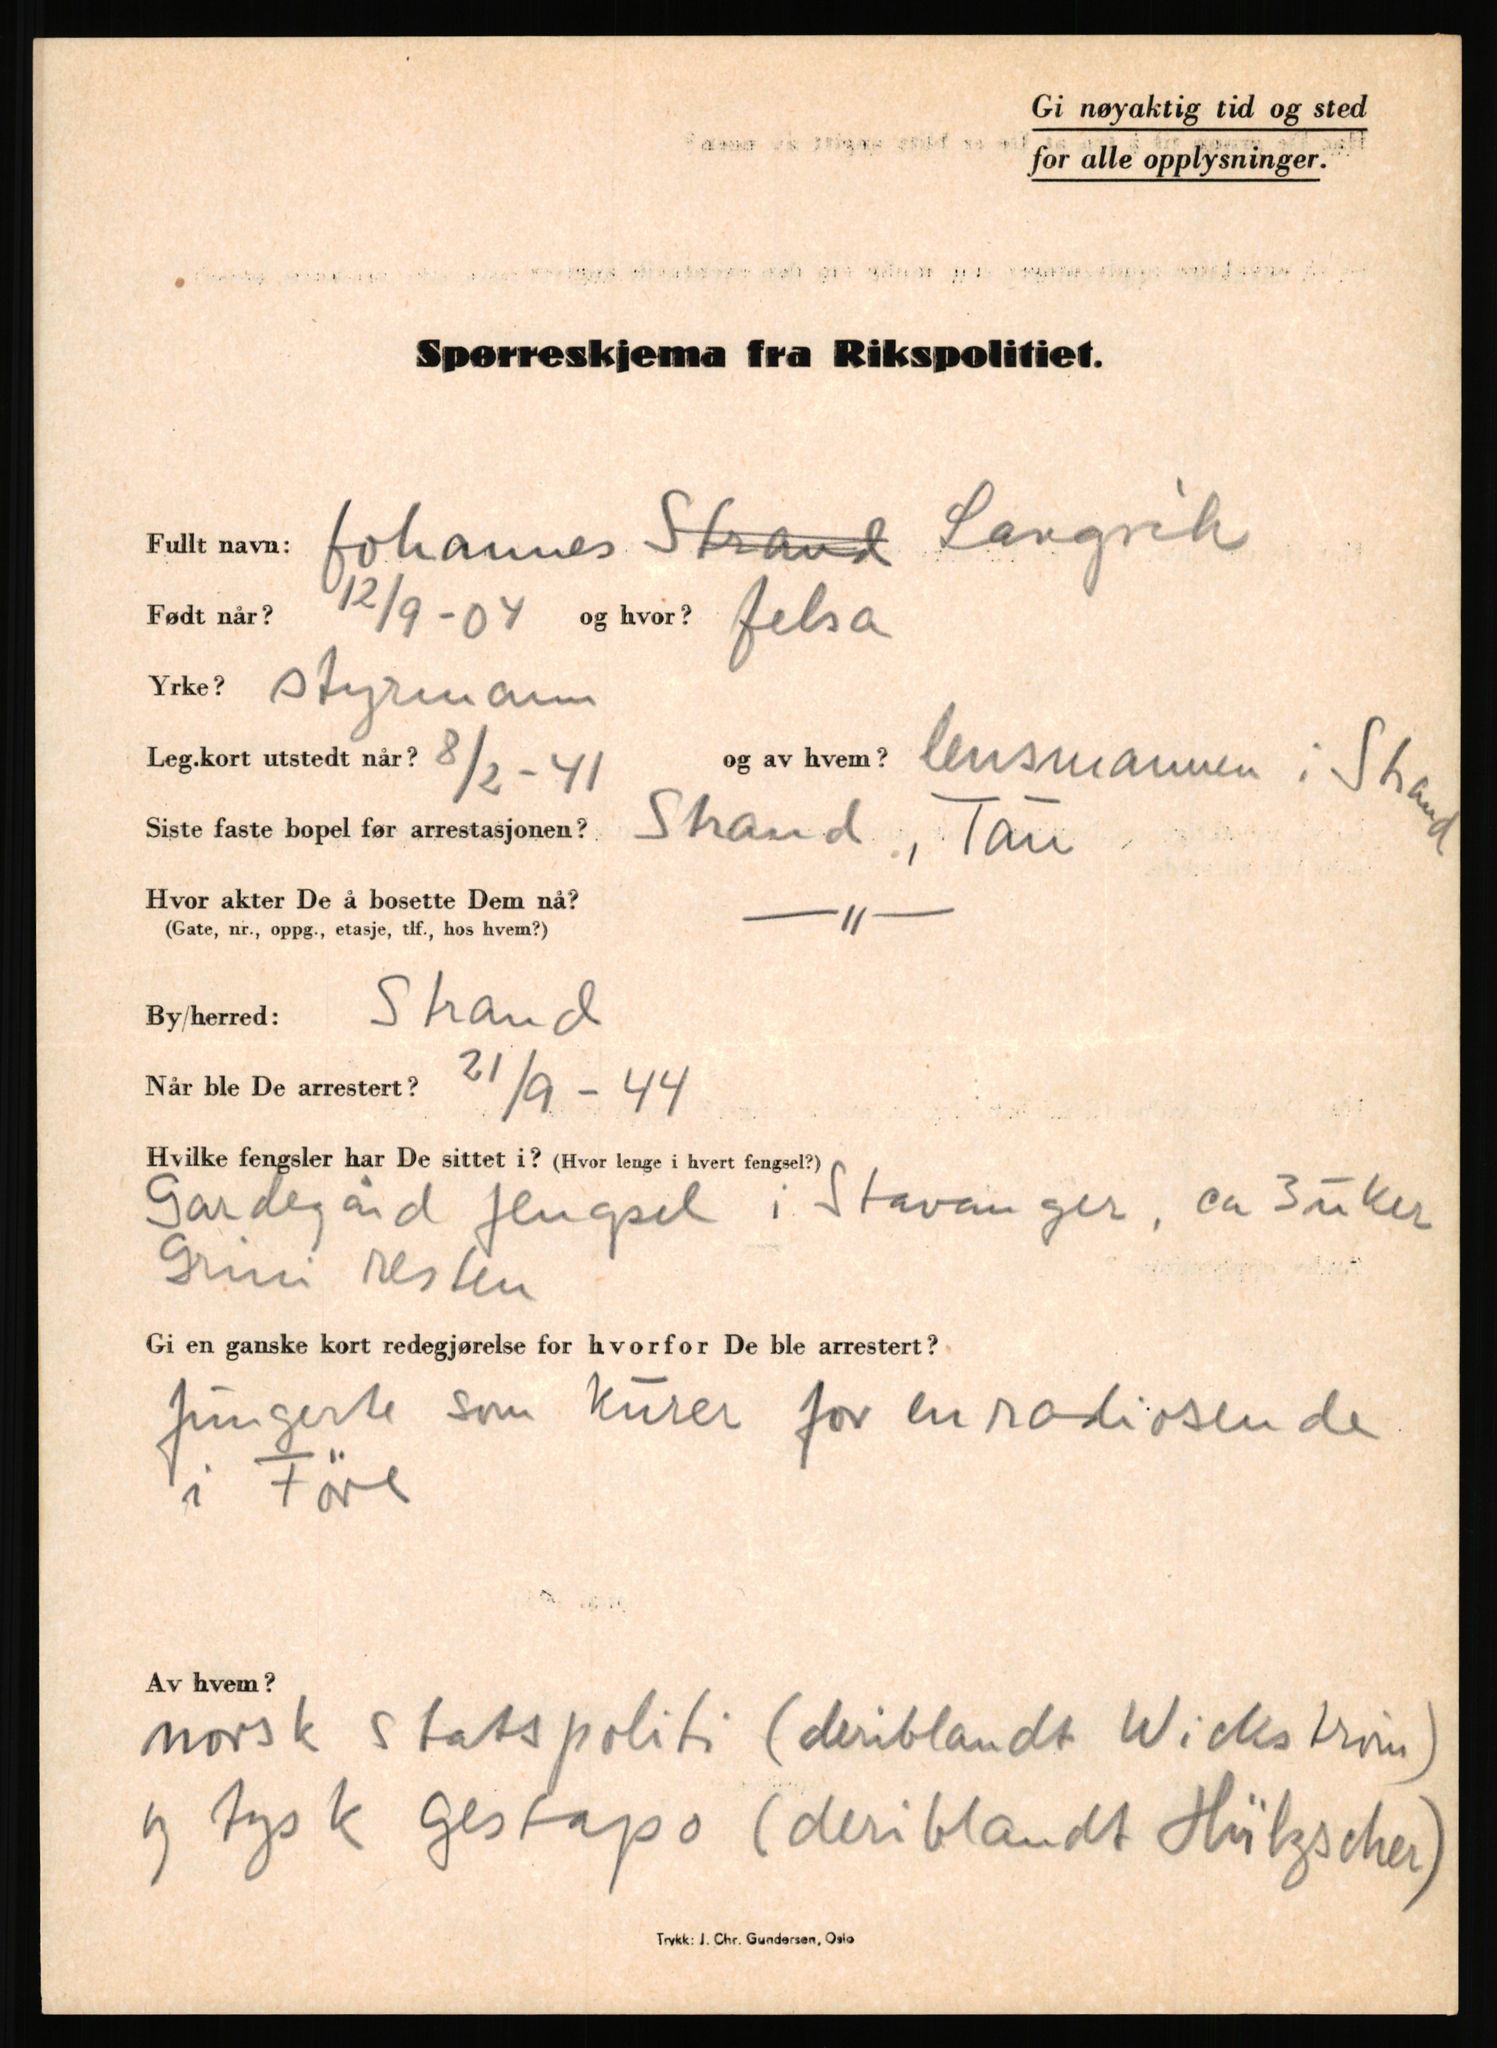 Gi nøyaktig tid og sted
for alle opplysninger.
Spørreskjema fra Rikspolitiet.
Fullt navn: Johannes Strand Langvik
Født når? 12/9-04 og hvor? Jelsa
Yrke? styrmann
Leg.kort utstedt når? 8/2-41 og av hvem? lensmannen i Strand
Siste faste bopel før arrestasjonen? Strand, Tau
Hvor akter De å bosette Dem nå? —"—
(Gate, nr., oppg., etasje, tlf., hos hvem?)
By/herred: Strand
Når ble De arrestert? 21/9-44
Hvilke fengsler har De sittet i? (Hvor lenge i hvert fengsel?)
Gardegård fengsel i Stavanger, ca 3 uker
Grini resten
Gi en ganske kort redegjørelse for hvorfor De ble arrestert?
fungerte som kurer for en radiosende
i
Av hvem?
norsk statspoliti (deriblandt Wickstrøm)
og tysk gestapo (deriblandt Hülzscher)
Trykk: J. Chr. Gundersen, Oslo